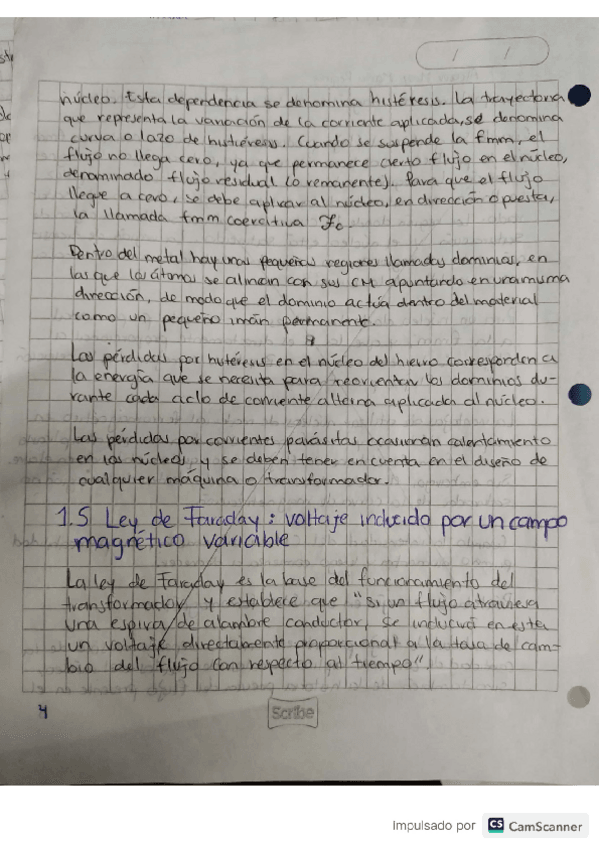 núcleo. Esta dependencia se denomina histéresis. La trayectoria
que representa la variación de la corriente aplicada, se denomina
curva o lazo de histéresis. Cuando se suspende la fmm, el
flujo no llega cero, ya que permanece cierto flujo en el núcleo,
denominado flujo residual (o remanente). Para que el flujo
llegue a cero, se debe aplicar al núcleo, en dirección opuesta,
la llamada fmm coercitiva Fc.
Dentro del metal hay unas pequeñas regiones llamadas dominios, en
las que los átomos se alinean con sus CM apuntando en una misma
dirección, de modo que el dominio actúa dentro del material
como un pequeño imán permanente.
Las pérdidas por histéresis en el núcleo del hierro corresponden a
la energía que se necesita para reorientar los dominios du-
rante cada ciclo de corriente alterna aplicada al núcleo.
Las pérdidas por corrientes parásitas ocasionan calentamiento
en los núcleos y se deben tener en cuenta en el diseño de
cualquier máquina o transformador.
1.5 Ley de Faraday: voltaje inducido por un campo
magnético variable
La ley de Faraday es la base del funcionamiento del
transformador y establece que "si un flujo atraviesa
una espira de alambre conductor, se inducirá en esta
un voltaje directamente proporcional a la tasa de cam-
bio del flujo con respecto al tiempo".
4
Scribe
Impulsado por CS CamScanner